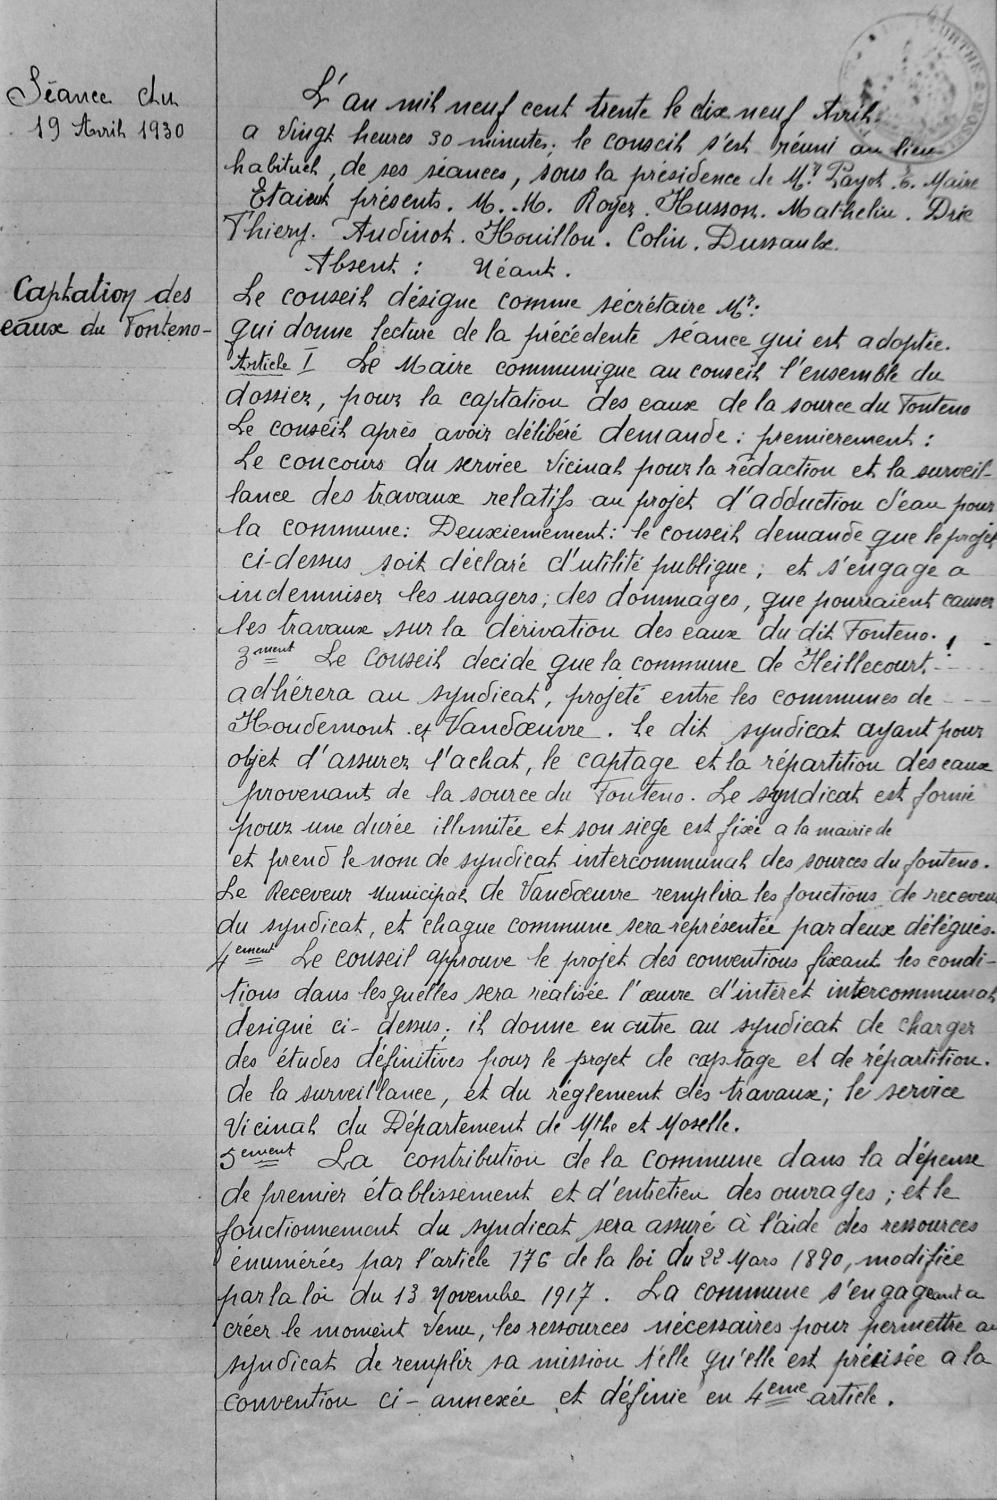 Séance du
19 Avril 1930
L'an mil neuf cent trente le dix neuf Avril
a vingt heures 30 minutes, le conseil s'est réuni au lieu
habituel, de ses séances, sous la présidence de Mr Payot E. Maire
Etaient présents. M. M. Royer. Husson. Mathelin. Drié
Thiery. Audinot. Houillon. Colin. Dussaulx.
Absent : Néant.
Captation des
eaux du Fonteno-
Le conseil désigne comme sécrétaire Mr:
qui donne lecture de la précédente séance qui est adoptée.
Article I Le Maire communique au conseil l'ensemble du
dossier, pour la captation des eaux de la source du Fonteno
Le conseil après avoir délibéré demande : premierement :
Le concours du service Vicinal pour la rédaction et la surveil-
lance des travaux relatifs au projet d'adduction d'eau pour
la commune: Deuxiemement: le conseil demande que le projet
ci-dessus soit déclaré d'utilité publique ; et s'engage a
indemniser les usagers ; des dommages, que pourraient causer
les travaux sur la dérivation des eaux du dit Fonteno.
3ment Le Conseil decide que la commune de Heillecourt
adhérera au syndicat, projeté entre les communes de ---
Houdemont et Vandœuvre. Le dit syndicat ayant pour
objet d'assurer l'achat, le captage et la répartition des eaux
provenant de la source du Fonteno. Le syndicat est formé
pour une durée illimitée et son siege est fixé a la mairie de
et prend le nom de syndicat intercommunal des sources du fonteno.
Le Receveur Municipal de Vandœuvre remplira les fonctions de receveur
du syndicat, et chaque commune sera représentée par deux délégués.
4ement Le conseil approuve le projet des conventions fixant les condi-
tions dans lesquelles sera réalisée l'œuvre d'intérêt intercommunal
désigné ci-dessus ; il donne en outre au syndicat de charger
des études définitives pour le projet de captage et de répartition.
de la surveillance, et du réglement des travaux ; le service
Vicinal du Département de Mthe et Moselle.
5ement La contribution de la commune dans la dépense
de premier établissement et d'entretien des ouvrages ; et le
fonctionnement du syndicat sera assuré à l'aide des ressources
énumérées par l'article 176 de la loi du 22 Mars 1890, modifiée
par la loi du 13 Novembre 1917. La commune s'engageant a
créer le moment venu, les ressources nécessaires pour permettre au
syndicat de remplir sa mission t'elle qu'elle est précisée a la
convention ci-annexée et définie en 4eme article.